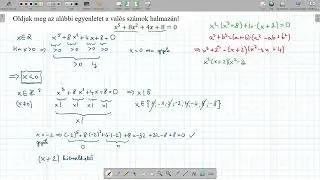 Oldjuk meg az alábbi egyenletet a valós számok halmazán!
x⁵ + 8x² + 4x + 8 = 0
x∈ℝ
x⁵ + 8x² + 4x + 8 = 0
>0 >0 >0
x < 0
x∈ℤ?
(x≠0)
x⁵ + 8x² + 4x + 8 = 0 ⇒ x | 8
x| x| x| x|
x∈{
x = -2 ⇒ (-2)⁵ + 8·(-2)² + 4·(-2) + 8 = -32 + 32 - 8 + 8 = 0 ✓
gyök
0 0
(x+2) kiemelhető
x²·(x³+8) + 4·(x+2) = 0
a³ + b³ = (a+b)·(a² - ab + b²)
⇒ x³ + 2³ = (x+2)·(x² - 2x + 4)
x²(x+2)(x² - 2